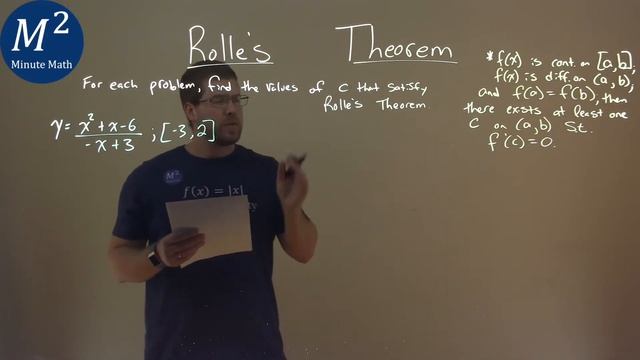 M²
Minute Math
Rolle's Theorem
For each problem, find the values of c that satisfy
Rolle's Theorem.
y = x² + x - 6 / -x + 3 ; [-3, 2]
* f(x) is cont. on [a, b],
f(x) is diff. on (a, b),
and f(a) = f(b), then
there exists at least one
c on (a, b) st.
f'(c) = 0.
M²
f(x) = |x|